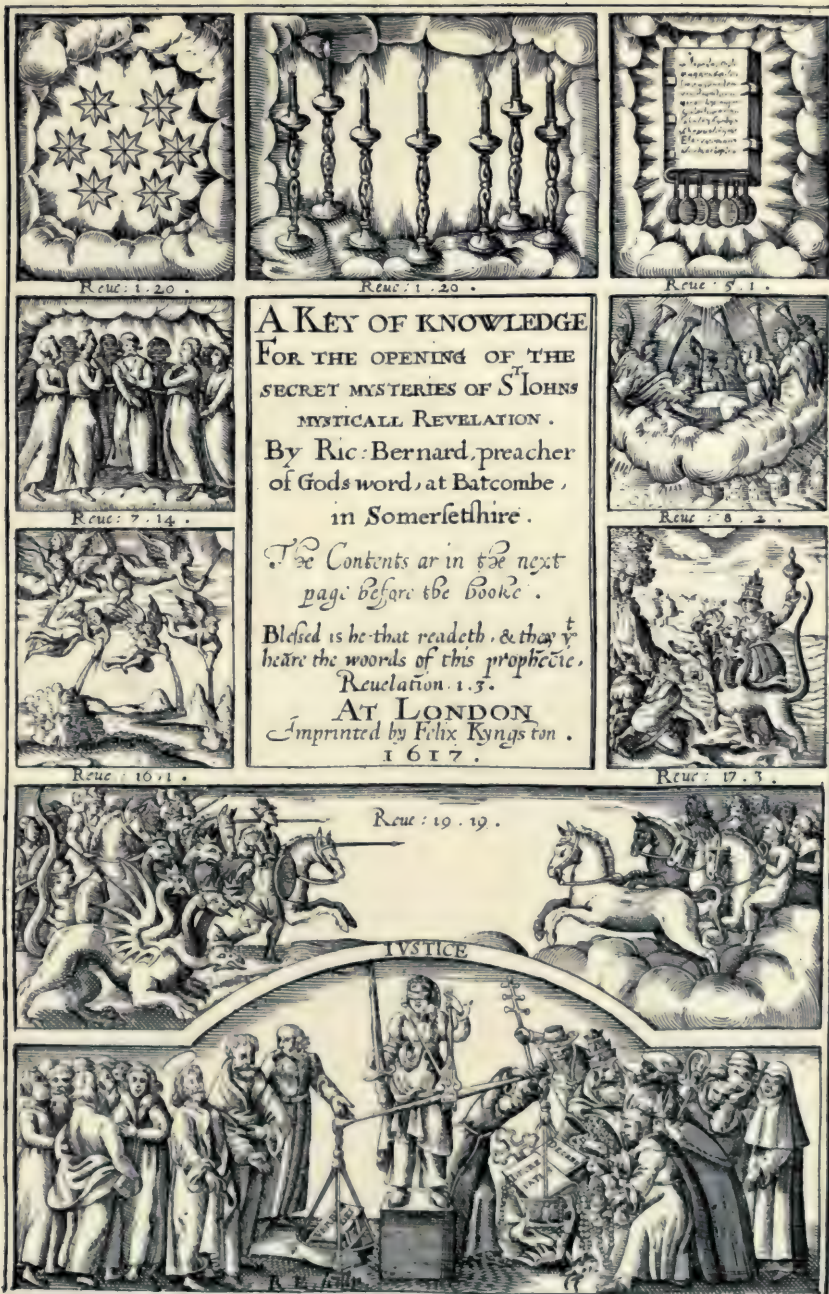 Reue : 1 . 20 .
Reue : 1 . 20 .
Reue : 5 . 1 .
Reue : 7 . 14 .
Reue : 8 . 2 .
A KEY OF KNOWLEDGE
FOR THE OPENING OF THE
SECRET MYSTERIES OF Sᵀ IOHNS
MYSTICALL REVELATION .
By Ric : Bernard, preacher
of Gods word, at Batcombe,
in Somerſetſhire .
The Contents ar in the next
page before the booke .
Bleſsed is he that readeth, & they yᵗ
heare the woords of this prophecie,
Reuelation . 1 . 3 .
AT LONDON
Imprinted by Felix Kyngſton .
1617 .
Reue : 16 . 1 .
Reue : 17 . 3 .
Reue : 19 . 19 .
IVSTICE